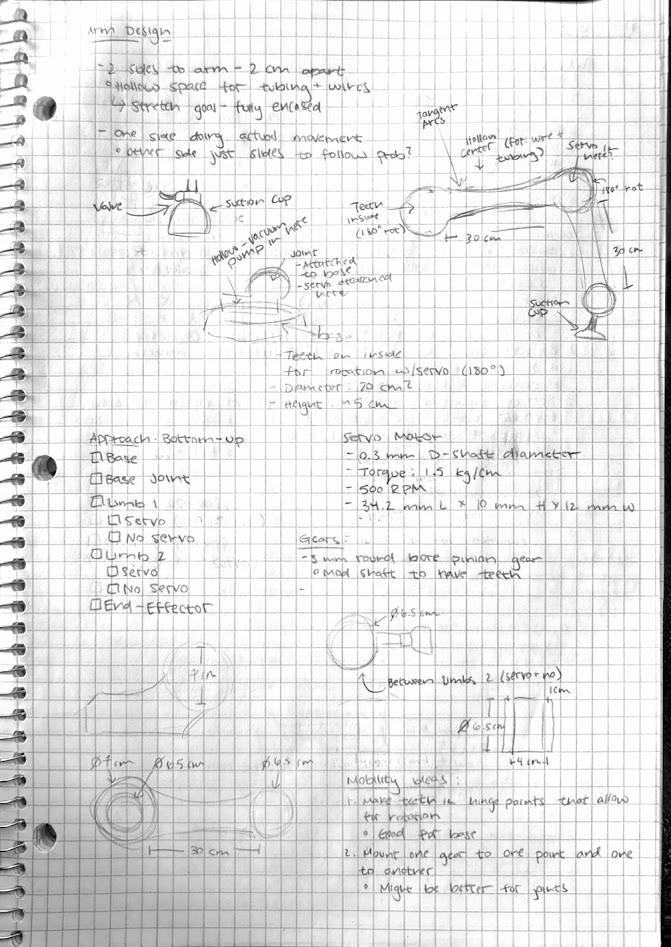 Arm Design
- 2 sides to arm - 2 cm apart
° Hollow space for tubing + wires
↳ Stretch goal - fully encased
- one side doing actual movement
° other side just slides to follow prob?
Tangent
Arcs
Hollow
center (for wire +
tubing)
Servo in
here?
180° rot
Teeth
inside
(180° rot)
30 cm
30 cm
Suction
Cup
Valve
Suction Cup
Hollow - vacuum
pump in here
Joint
- Attatched
to base
- Servo attatched
here
- Teeth on inside
for rotation w/servo (180°)
- Diameter: 20 cm²
- Height: ~5 cm
Approach: Bottom-up
□ Base
□ Base Joint
□ Limb 1
□ Servo
□ No servo
□ Limb 2
□ Servo
□ No servo
□ End-Effector
Servo Motor
- 0.3 mm D-shaft diameter
- Torque: 1.5 kg/cm
- 500 RPM
- 34.2 mm L x 10 mm H x 12 mm W
Gears:
- 3 mm round bore pinion gear
° Mod shaft to have teeth
-
Ø6.5cm
Between Limbs 2 (servo + no)
1cm
Ø 6.5cm
4 cm
Ø7cm
Ø6.5cm
Ø6.5cm
30 cm
Mobility Ideas:
1. Make teeth in hinge points that allow
for rotation
° Good for base
2. Mount one gear to one point and one
to another
° Might be better for joints